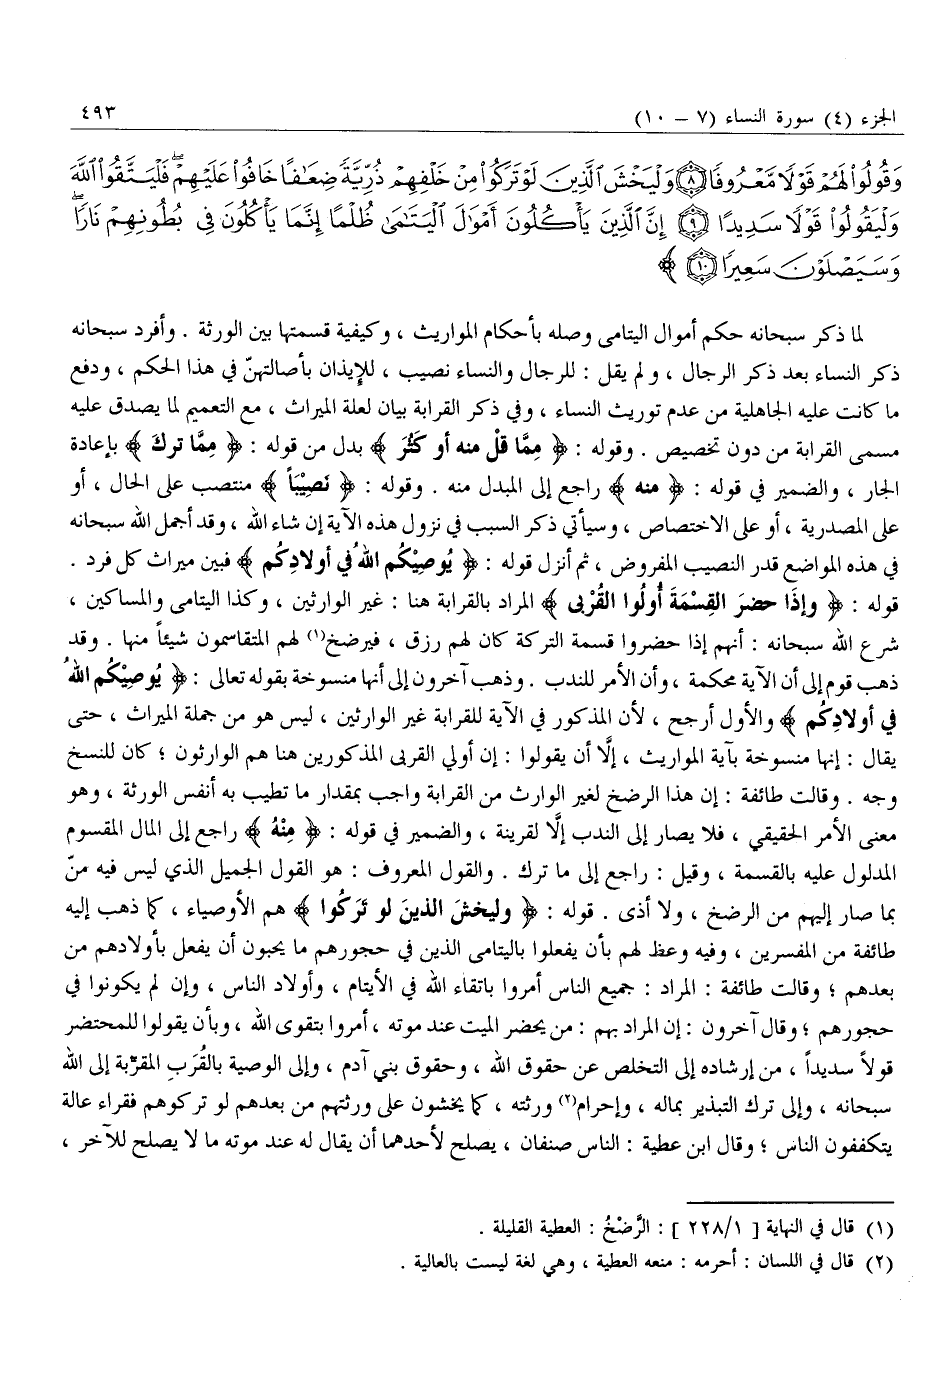 الجزء (٤) سورة النساء (٧ – ١٠) ٤٩٣
وَقُولُوا۟ لَهُمْ قَوْلًا مَّعْرُوفًا ﴿٨﴾ وَلْيَخْشَ ٱلَّذِينَ لَوْ تَرَكُوا۟ مِنْ خَلْفِهِمْ ذُرِّيَّةً ضِعَٰفًا خَافُوا۟ عَلَيْهِمْ ۖ فَلْيَتَّقُوا۟ ٱللَّهَ
وَلْيَقُولُوا۟ قَوْلًا سَدِيدًا ﴿٩﴾ إِنَّ ٱلَّذِينَ يَأْكُلُونَ أَمْوَٰلَ ٱلْيَتَٰمَىٰ ظُلْمًا إِنَّمَا يَأْكُلُونَ فِى بُطُونِهِمْ نَارًا ۖ
وَسَيَصْلَوْنَ سَعِيرًا ﴿١٠﴾ ﴾
لما ذكر سبحانه حكم أموال اليتامى وصله بأحكام المواريث ، وكيفية قسمتها بين الورثة . وأفرد سبحانه
ذكر النساء بعد ذكر الرجال ، ولم يقل : للرجال والنساء نصيب ، للإيذان بأصالتهنّ في هذا الحكم ، ودفع
ما كانت عليه الجاهلية من عدم توريث النساء ، وفي ذكر القرابة بيان لعلة الميراث ، مع التعميم لما يصدق عليه
مسمى القرابة من دون تخصيص . وقوله : ﴿ مِمَّا قلْ منه أو كَثُرَ ﴾ بدل من قوله : ﴿ مِمَّا تركَ ﴾ بإعادة
الجار ، والضمير في قوله : ﴿ منه ﴾ راجع إلى المبدل منه . وقوله : ﴿ نَصِيْبَاً ﴾ منتصب على الحال ، أو
على المصدرية ، أو على الاختصاص ، وسيأتي ذكر السبب في نزول هذه الآية إن شاء الله ، وقد أجمل الله سبحانه
في هذه المواضع قدر النصيب المفروض ، ثم أنزل قوله : ﴿ يُوصِيْكُم اللهُ في أولادِكُم ﴾ فبين ميراث كل فرد .
قوله : ﴿ وإذَا حضرَ القِسْمَةَ أُولُوا القُرْبى ﴾ المراد بالقرابة هنا : غير الوارثين ، وكذا اليتامى والمساكين ،
شرع الله سبحانه : أنهم إذا حضروا قسمة التركة كان لهم رزق ، فيرضخ(١) لهم المتقاسمون شيئاً منها . وقد
ذهب قوم إلى أن الآية محكمة ، وأن الأمر للندب . وذهب آخرون إلى أنها منسوخة بقوله تعالى : ﴿ يُوصِيْكُم اللهُ
في أولادِكُم ﴾ والأول أرجح ، لأن المذكور في الآية للقرابة غير الوارثين ، ليس هو من جملة الميراث ، حتى
يقال : إنها منسوخة بآية المواريث ، إلَّا أن يقولوا : إن أولي القربى المذكورين هنا هم الوارثون ؛ كان للنسخ
وجه . وقالت طائفة : إن هذا الرضخ لغير الوارث من القرابة واجب بمقدار ما تطيب به أنفس الورثة ، وهو
معنى الأمر الحقيقي ، فلا يصار إلى الندب إلَّا لقرينة ، والضمير في قوله : ﴿ مِنْهُ ﴾ راجع إلى المال المقسوم
المدلول عليه بالقسمة ، وقيل : راجع إلى ما ترك . والقول المعروف : هو القول الجميل الذي ليس فيه منّ
بما صار إليهم من الرضخ ، ولا أذى . قوله : ﴿ وليخشَ الذينَ لو تَرَكُوا ﴾ هم الأوصياء ، كما ذهب إليه
طائفة من المفسرين ، وفيه وعظ لهم بأن يفعلوا باليتامى الذين في حجورهم ما يحبون أن يفعل بأولادهم من
بعدهم ؛ وقالت طائفة : المراد : جميع الناس أمروا باتقاء الله في الأيتام ، وأولاد الناس ، وإن لم يكونوا في
حجورهم ؛ وقال آخرون : إن المراد بهم : من يحضر الميت عند موته ، أمروا بتقوى الله ، وبأن يقولوا للمحتضر
قولاً سديداً ، من إرشاده إلى التخلص عن حقوق الله ، وحقوق بني آدم ، وإلى الوصية بالقُرَبِ المقرّبة إلى الله
سبحانه ، وإلى ترك التبذير بماله ، وإحرام(٢) ورثته ، كما يخشون على ورثتهم من بعدهم لو تركوهم فقراء عالة
يتكففون الناس ؛ وقال ابن عطية : الناس صنفان ، يصلح لأحدهما أن يقال له عند موته ما لا يصلح للآخر ،
(١) قال في النهاية [ ٢٢٨/١ ] : الرَّضْخُ : العطية القليلة .
(٢) قال في اللسان : أحرمه : منعه العطية ، وهي لغة ليست بالعالية .